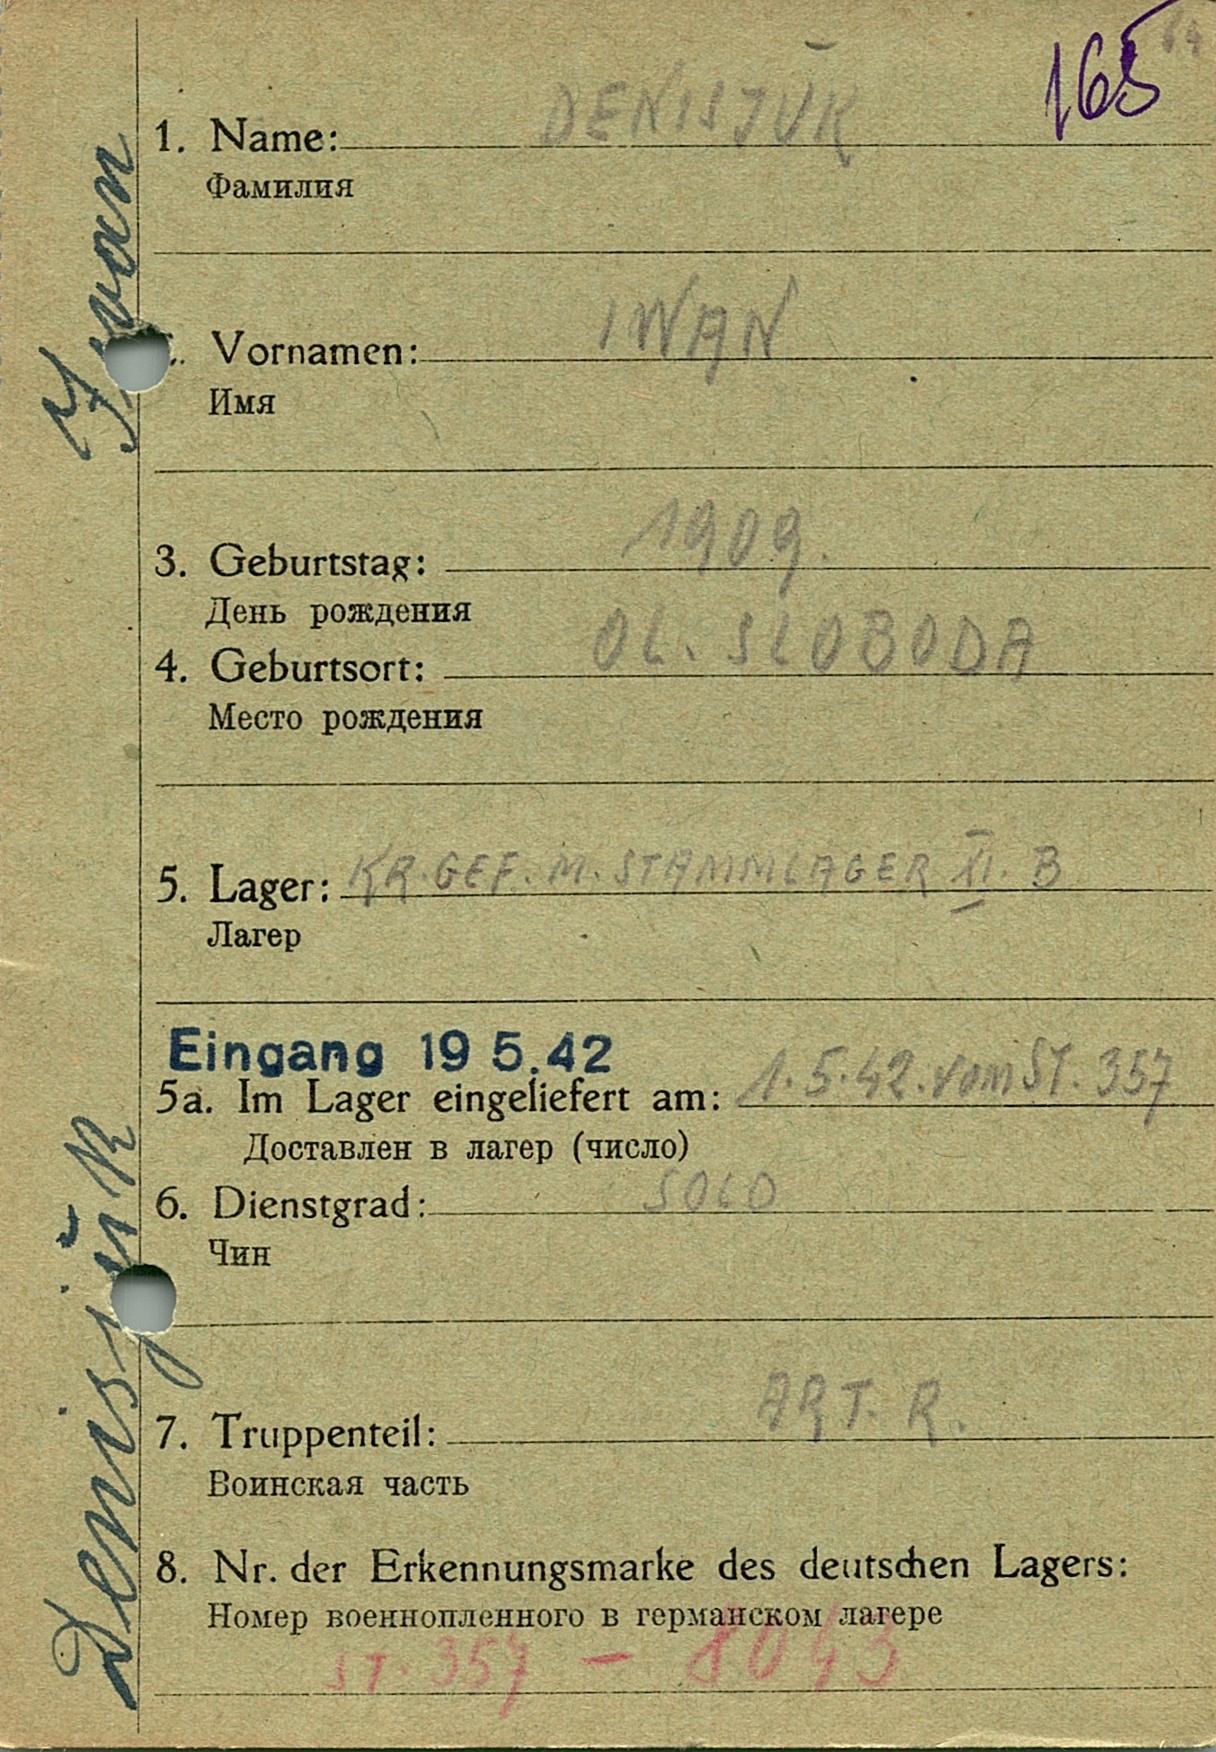 165
1. Name: DENISJUK
Фамилия
. Vornamen: IWAN
Имя
3. Geburtstag: 1909.
День рождения
4. Geburtsort: OL. SLOBODA
Место рождения
5. Lager: KR. GEF. M. STAMMLAGER XI. B
Лагер
Eingang 19 5.42
5a. Im Lager eingeliefert am: 1.5.42. vom ST. 357
Доставлен в лагер (число)
6. Dienstgrad: SOLD
Чин
7. Truppenteil: ART. R.
Воинская часть
8. Nr. der Erkennungsmarke des deutschen Lagers:
Номер военнопленного в германском лагере
ST. 357 – 8043
Denisjuk Iwan